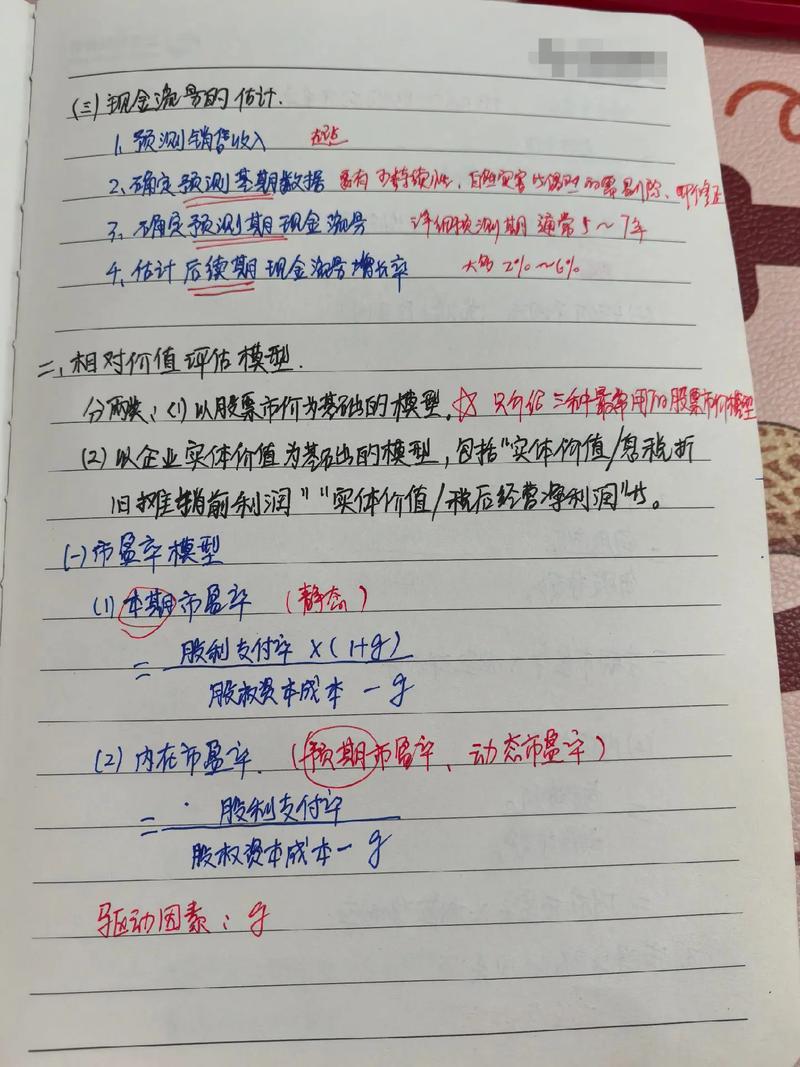 (三)现金流量的估计.
1. 预测销售收入 起点
2、确定预测基期数据 具有可持续性, 自然灾害等偶然的要剔除、即修正
3、确定预测期现金流量 详细预测期 通常5～7年
4、估计后续期现金流量增长率 大约2%～6%
二、相对价值评估模型.
分两类、(1)以股票市价为基础的模型. ☆ 只介绍三种最常用的股票市价模型
(2)以企业实体价值为基础的模型,包括“实体价值/息税折
旧摊销前利润”“实体价值/税后经营净利润”等。
(一)市盈率模型
(1)本期市盈率 (静态)
= 股利支付率×(1+g)
股权资本成本-g
(2)内在市盈率. (预期市盈率、动态市盈率)
= 股利支付率
股权资本成本-g
驱动因素: g